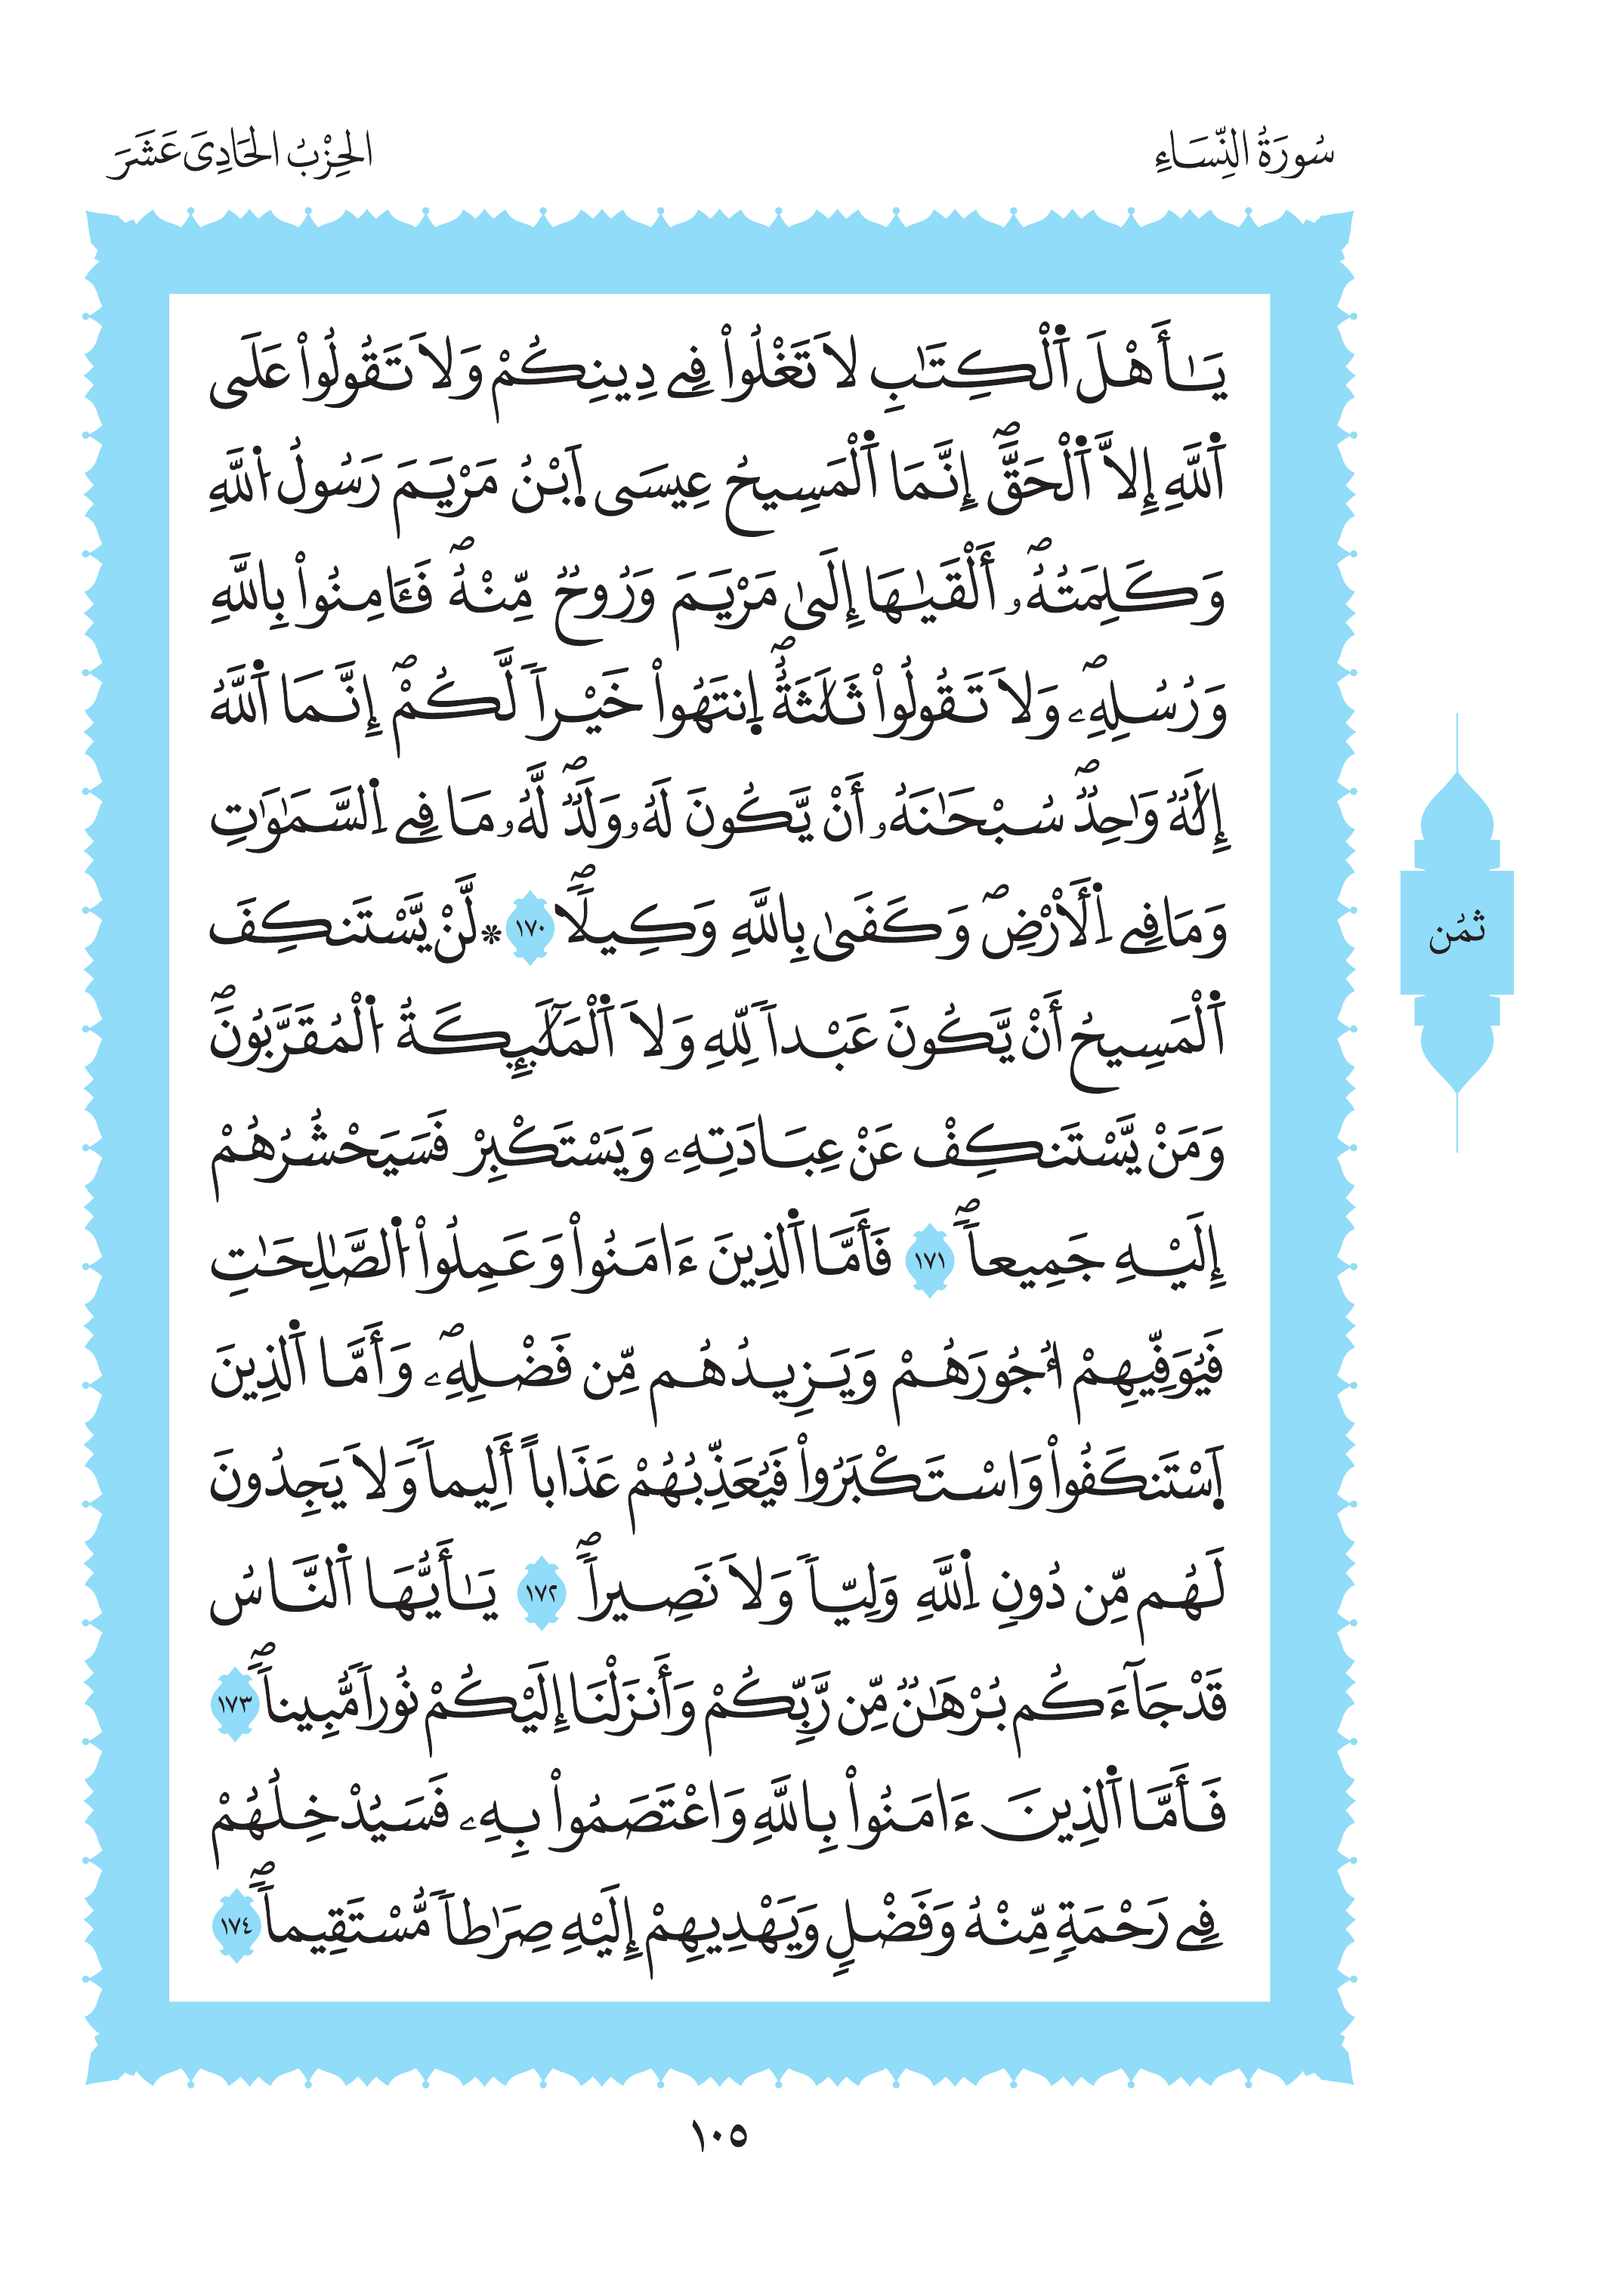 سُورَةُ النِّسَاءِ
الحِزْبُ الحَادِىَ عَشَرَ
يَٰٓأَهْلَ اَ۬لْكِتَٰبِ لَا تَغْلُواْ فِے دِينِكُمْ وَلَا تَقُولُواْ عَلَي
اَ۬للَّهِ إِلَّا اَ۬لْحَقَّۖ إِنَّمَا اَ۬لْمَسِيحُ عِيسَي اَ۪بْنُ مَرْيَمَ رَسُولُ اُ۬للَّهِ
وَكَلِمَتُهُۥٓۖ أَلْقَيٰهَا إِلَيٰ مَرْيَمَ وَرُوحٞ مِّنْهُۖ فَـَٔامِنُواْ بِاللَّهِ
وَرُسُلِهِۦۖ وَلَا تَقُولُواْ ثَلَٰثَةٌۖ اِ۪نتَهُواْ خَيْراٗ لَّكُمْۖ إِنَّمَا اَ۬للَّهُ
إِلَٰهٞ وَٰحِدٞۖ سُبْحَٰنَهُۥٓ أَنْ يَّكُونَ لَهُۥ وَلَدٞۖ لَّهُۥ مَا فِے اِ۬لسَّمَٰوَٰتِ
وَمَا فِے اِ۬لْأَرْضِۖ وَكَفَيٰ بِاللَّهِ وَكِيلاٗۖ ١٧٠ ۞ لَّنْ يَّسْتَنكِفَ
اَ۬لْمَسِيحُ أَنْ يَّكُونَ عَبْداٗ لِّلهِ وَلَا اَ۬لْمَلَٰٓئِكَةُ اُ۬لْمُقَرَّبُونَۖ
وَمَنْ يَّسْتَنكِفْ عَنْ عِبَادَتِهِۦ وَيَسْتَكْبِرْ فَسَيَحْشُرُهُمْ
إِلَيْهِ جَمِيعاٗۖ ١٧١ فَأَمَّا اَ۬لذِينَ ءَامَنُواْ وَعَمِلُواْ اُ۬لصَّٰلِحَٰتِ
فَيُوَفِّيهِمْ أُجُورَهُمْ وَيَزِيدُهُم مِّن فَضْلِهِۦۖ وَأَمَّا اَ۬لذِينَ
اَ۪سْتَنكَفُواْ وَاسْتَكْبَرُواْ فَيُعَذِّبُهُمْ عَذَاباً أَلِيماٗ وَلَا يَجِدُونَ
لَهُم مِّن دُونِ اِ۬للَّهِ وَلِيّاٗ وَلَا نَصِيراٗۖ ١٧٢ يَٰٓأَيُّهَا اَ۬لنَّاسُ
قَدْ جَآءَكُم بُرْهَٰنٞ مِّن رَّبِّكُمْ وَأَنزَلْنَا إِلَيْكُمْ نُوراٗ مُّبِيناٗۖ ١٧٣
فَأَمَّا اَ۬لذِينَ ءَامَنُواْ بِاللَّهِ وَاعْتَصَمُواْ بِهِۦ فَسَيُدْخِلُهُمْ
فِے رَحْمَةٖ مِّنْهُ وَفَضْلٖ وَيَهْدِيهِمْ إِلَيْهِ صِرَٰطاٗ مُّسْتَقِيماٗۖ ١٧٤
ثمُن
١٠٥